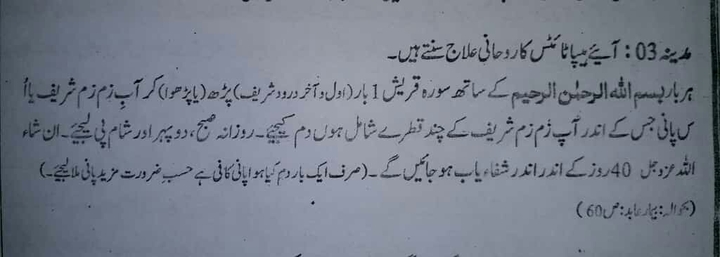 مدینہ 03: آیئے ہیپاٹائٹس کا روحانی علاج سنتے ہیں۔
ہر بار بسم اللہ الرحمٰن الرحیم کے ساتھ سورہ قریش 1 بار (اول و آخر درود شریف) پڑھ (یا پڑھوا) کر آبِ زم زم شریف یا اُ
س پانی جس کے اندر آبِ زم زم شریف کے چند قطرے شامل ہوں دم کیجیئے۔ روزانہ صبح، دوپہر اور شام پی لیجیئے۔ ان شاء
اللہ عزوجل 40 روز کے اندر اندر شفاء یاب ہو جائیں گے۔ (صرف ایک بار دم کیا ہوا پانی کافی ہے حسبِ ضرورت مزید پانی ملا لیجیئے۔)
(بحوالہ: بیمار عابد: ص 60)